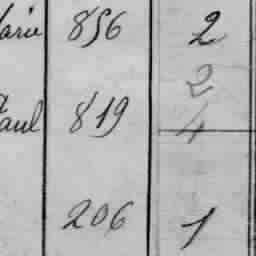 Marie 856 2
2
Paul 819 4
206 1